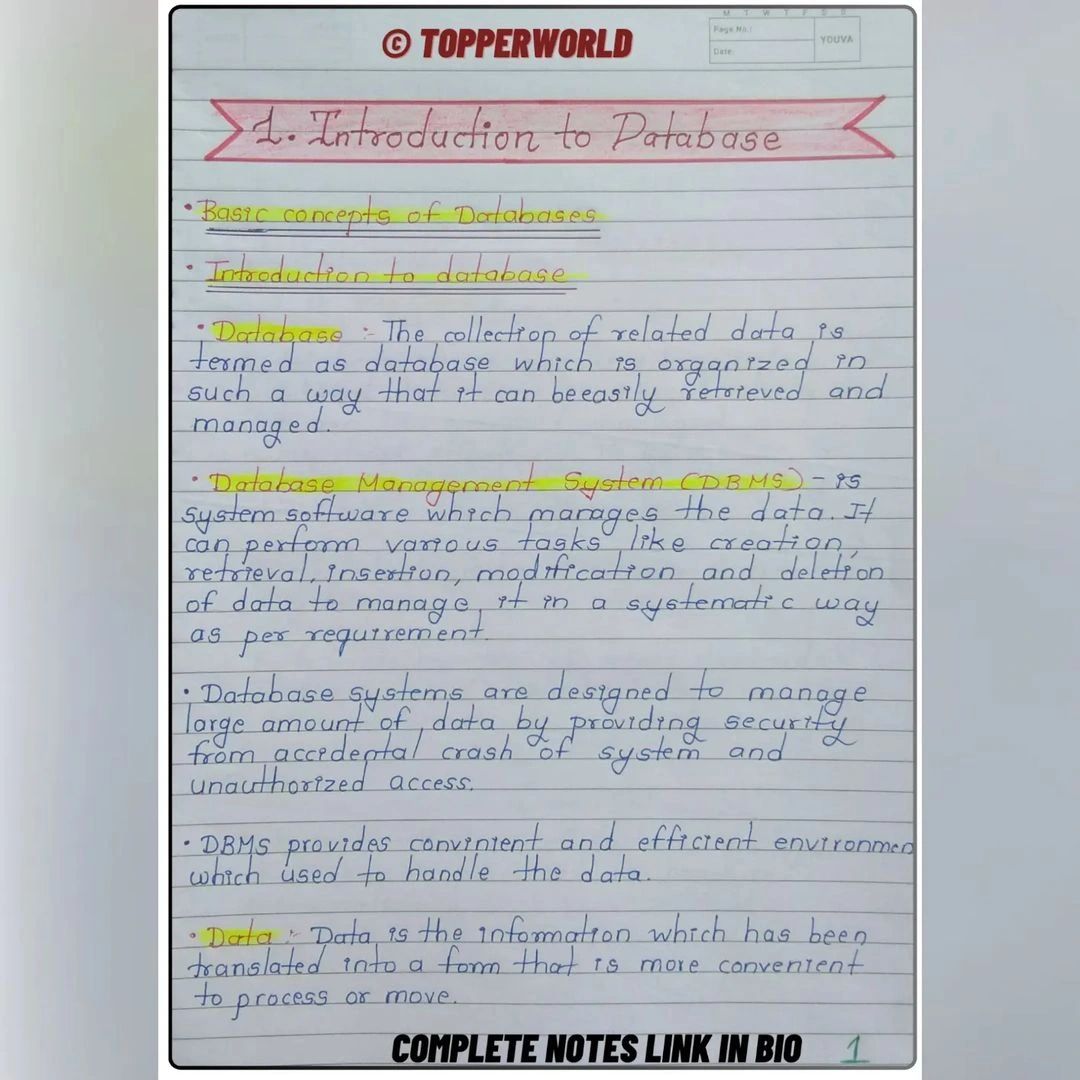 M T W T F S S
Page No.:
Date:
YOUVA
© TOPPERWORLD
1. Introduction to Database
• Basic concepts of Databases
• Introduction to database
• Database :- The collection of related data is
termed as database which is organized in
such a way that it can beeasily retrieved and
managed.
• Database Management System (DBMS) - is
system software which manages the data. It
can perform various tasks like creation,
retrieval, insertion, modification and deletion
of data to manage it in a systematic way
as per requirement.
• Database systems are designed to manage
large amount of data by providing security
from accidental crash of system and
unauthorized access.
• DBMS provides convinient and efficient environmen
which used to handle the data.
• Data :- Data is the information which has been
translated into a form that is more convenient
to process or move.
COMPLETE NOTES LINK IN BIO
1